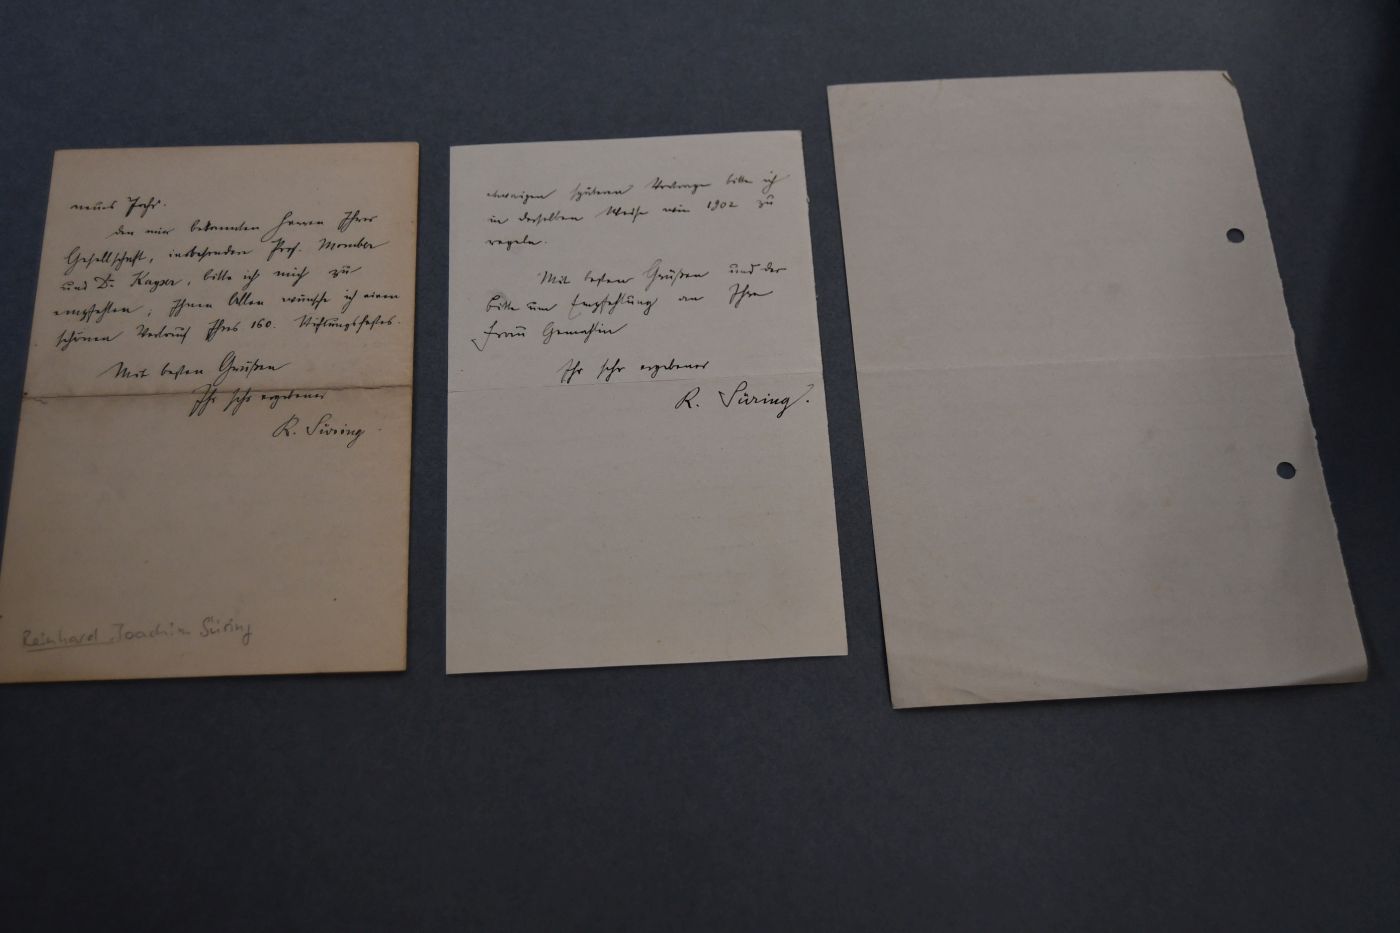 neues Jahr.
Den mir bekannten Herren Ihrer
Gesellschaft, insbesondere Prof. Momber
und Dr. Kayser, bitte ich mich zu
empfehlen; Ihnen Allen wünsche ich einen
schönen Verlauf Ihres 160. Stiftungsfestes.
Mit besten Grüßen
Ihr sehr ergebener
R. Süring
Reinhard Joachim Süring
etwaigen späteren Vortrage bitte ich
in derselben Weise wie 1902 zu
regeln.
Mit besten Grüßen und der
Bitte um Empfehlung an Ihre
Frau Gemahlin
Ihr sehr ergebener
R. Süring.